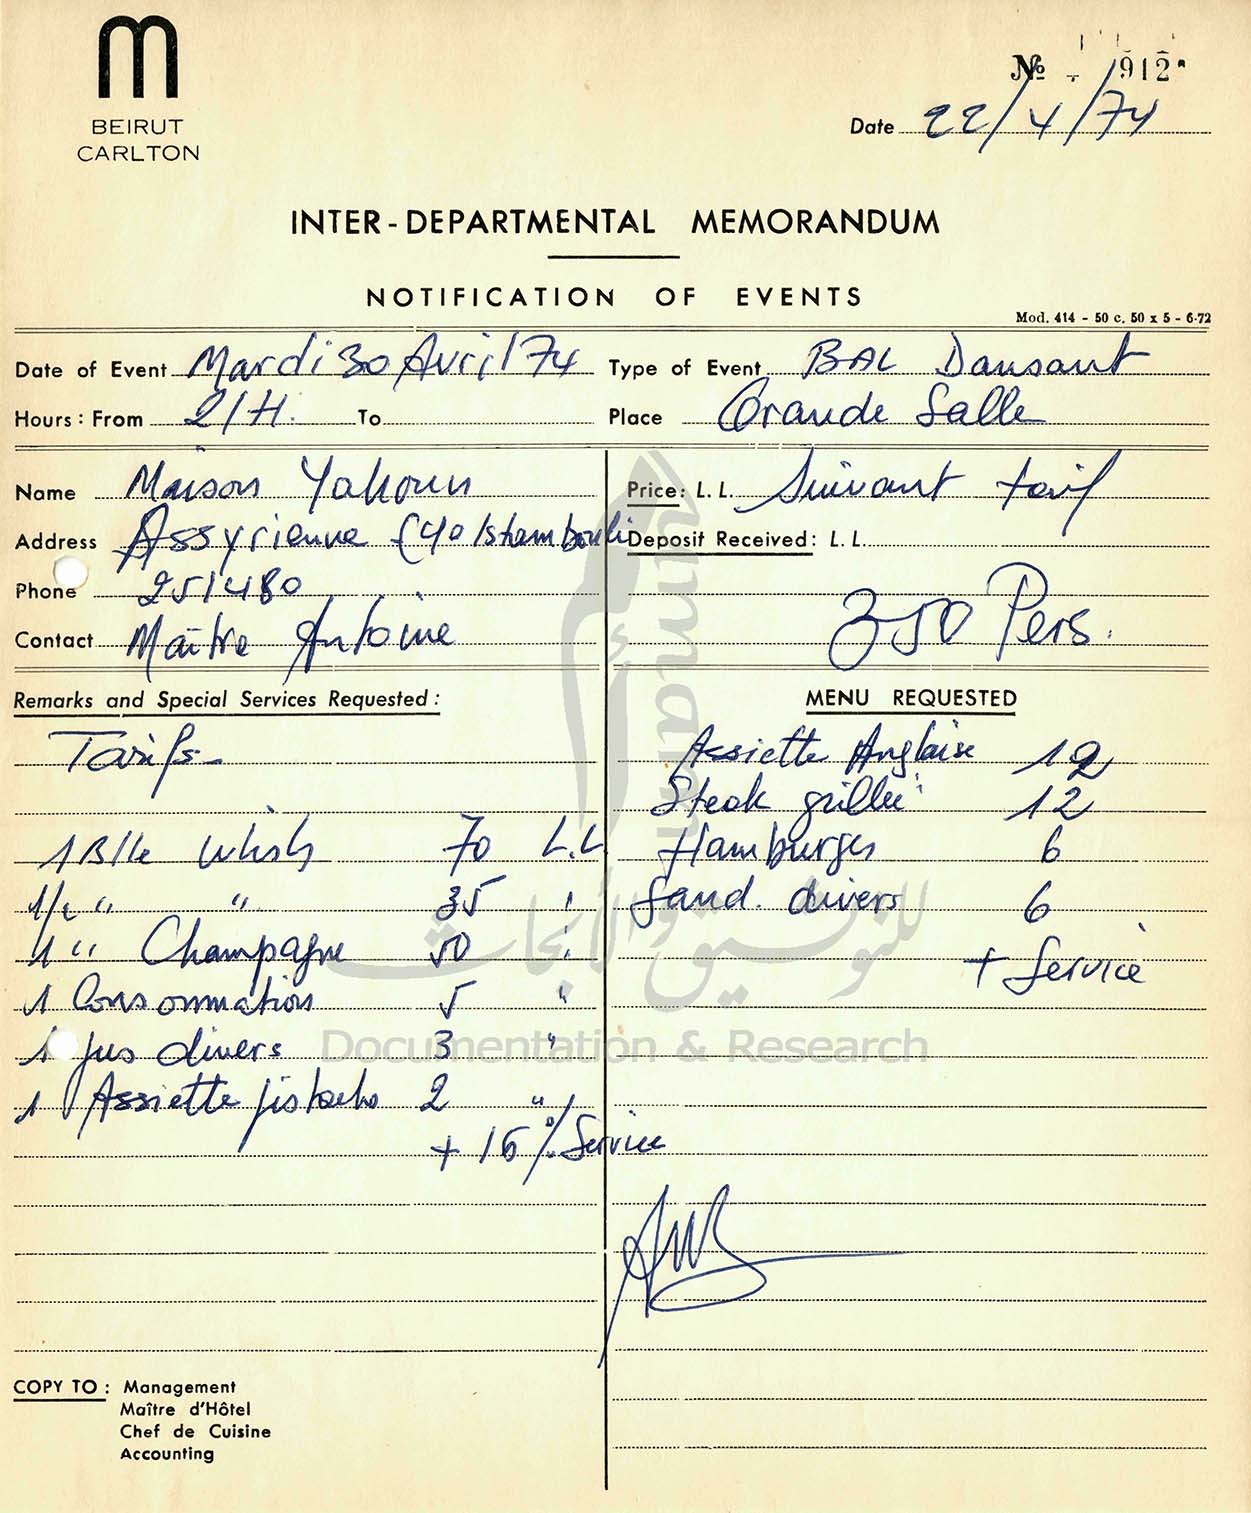 m
BEIRUT
CARLTON
Nº 912
Date 22/4/74
INTER-DEPARTMENTAL MEMORANDUM
NOTIFICATION OF EVENTS
Mod. 414 - 50 c. 50 x 5 - 6-72
Date of Event Mardi 30 Avril 74 Type of Event BAL Dansant
Hours: From 21H. To Place Grande Salle
Name Maison Yakoun
Price: L.L. Suivant tarif
Address Assyrienne Istambouli
Deposit Received: L.L.
Phone 251480
350 Pers.
Contact Maître Antoine
Remarks and Special Services Requested:
Tarifs-
1 Blle Whisky 70 L.L.
1/2 " " 35 "
1 " Champagne 50 "
1 Consommation 5 "
1 jus divers 3 "
1 Assiette pistache 2 "
+ 15 % Service
MENU REQUESTED
Assiette Anglaise 12
Steak grillée 12
Hamburger 6
Sand. divers 6
+ Service
COPY TO: Management
Maître d'Hôtel
Chef de Cuisine
Accounting
أمم
umam
للتوثيق والأبحاث
Documentation & Research